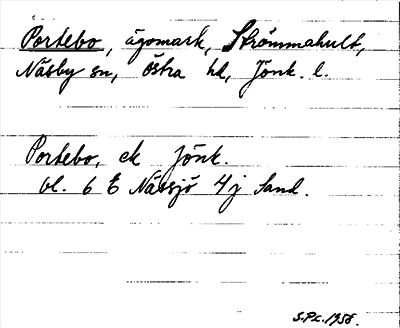 Portebo, ägomark, Strömmahult,
Näsby sn, östra hd, Jönk. l.
Portebo, ek Jönk.
bl. 6 E Nässjö 4 j Sand.
S.Pl. 1958.